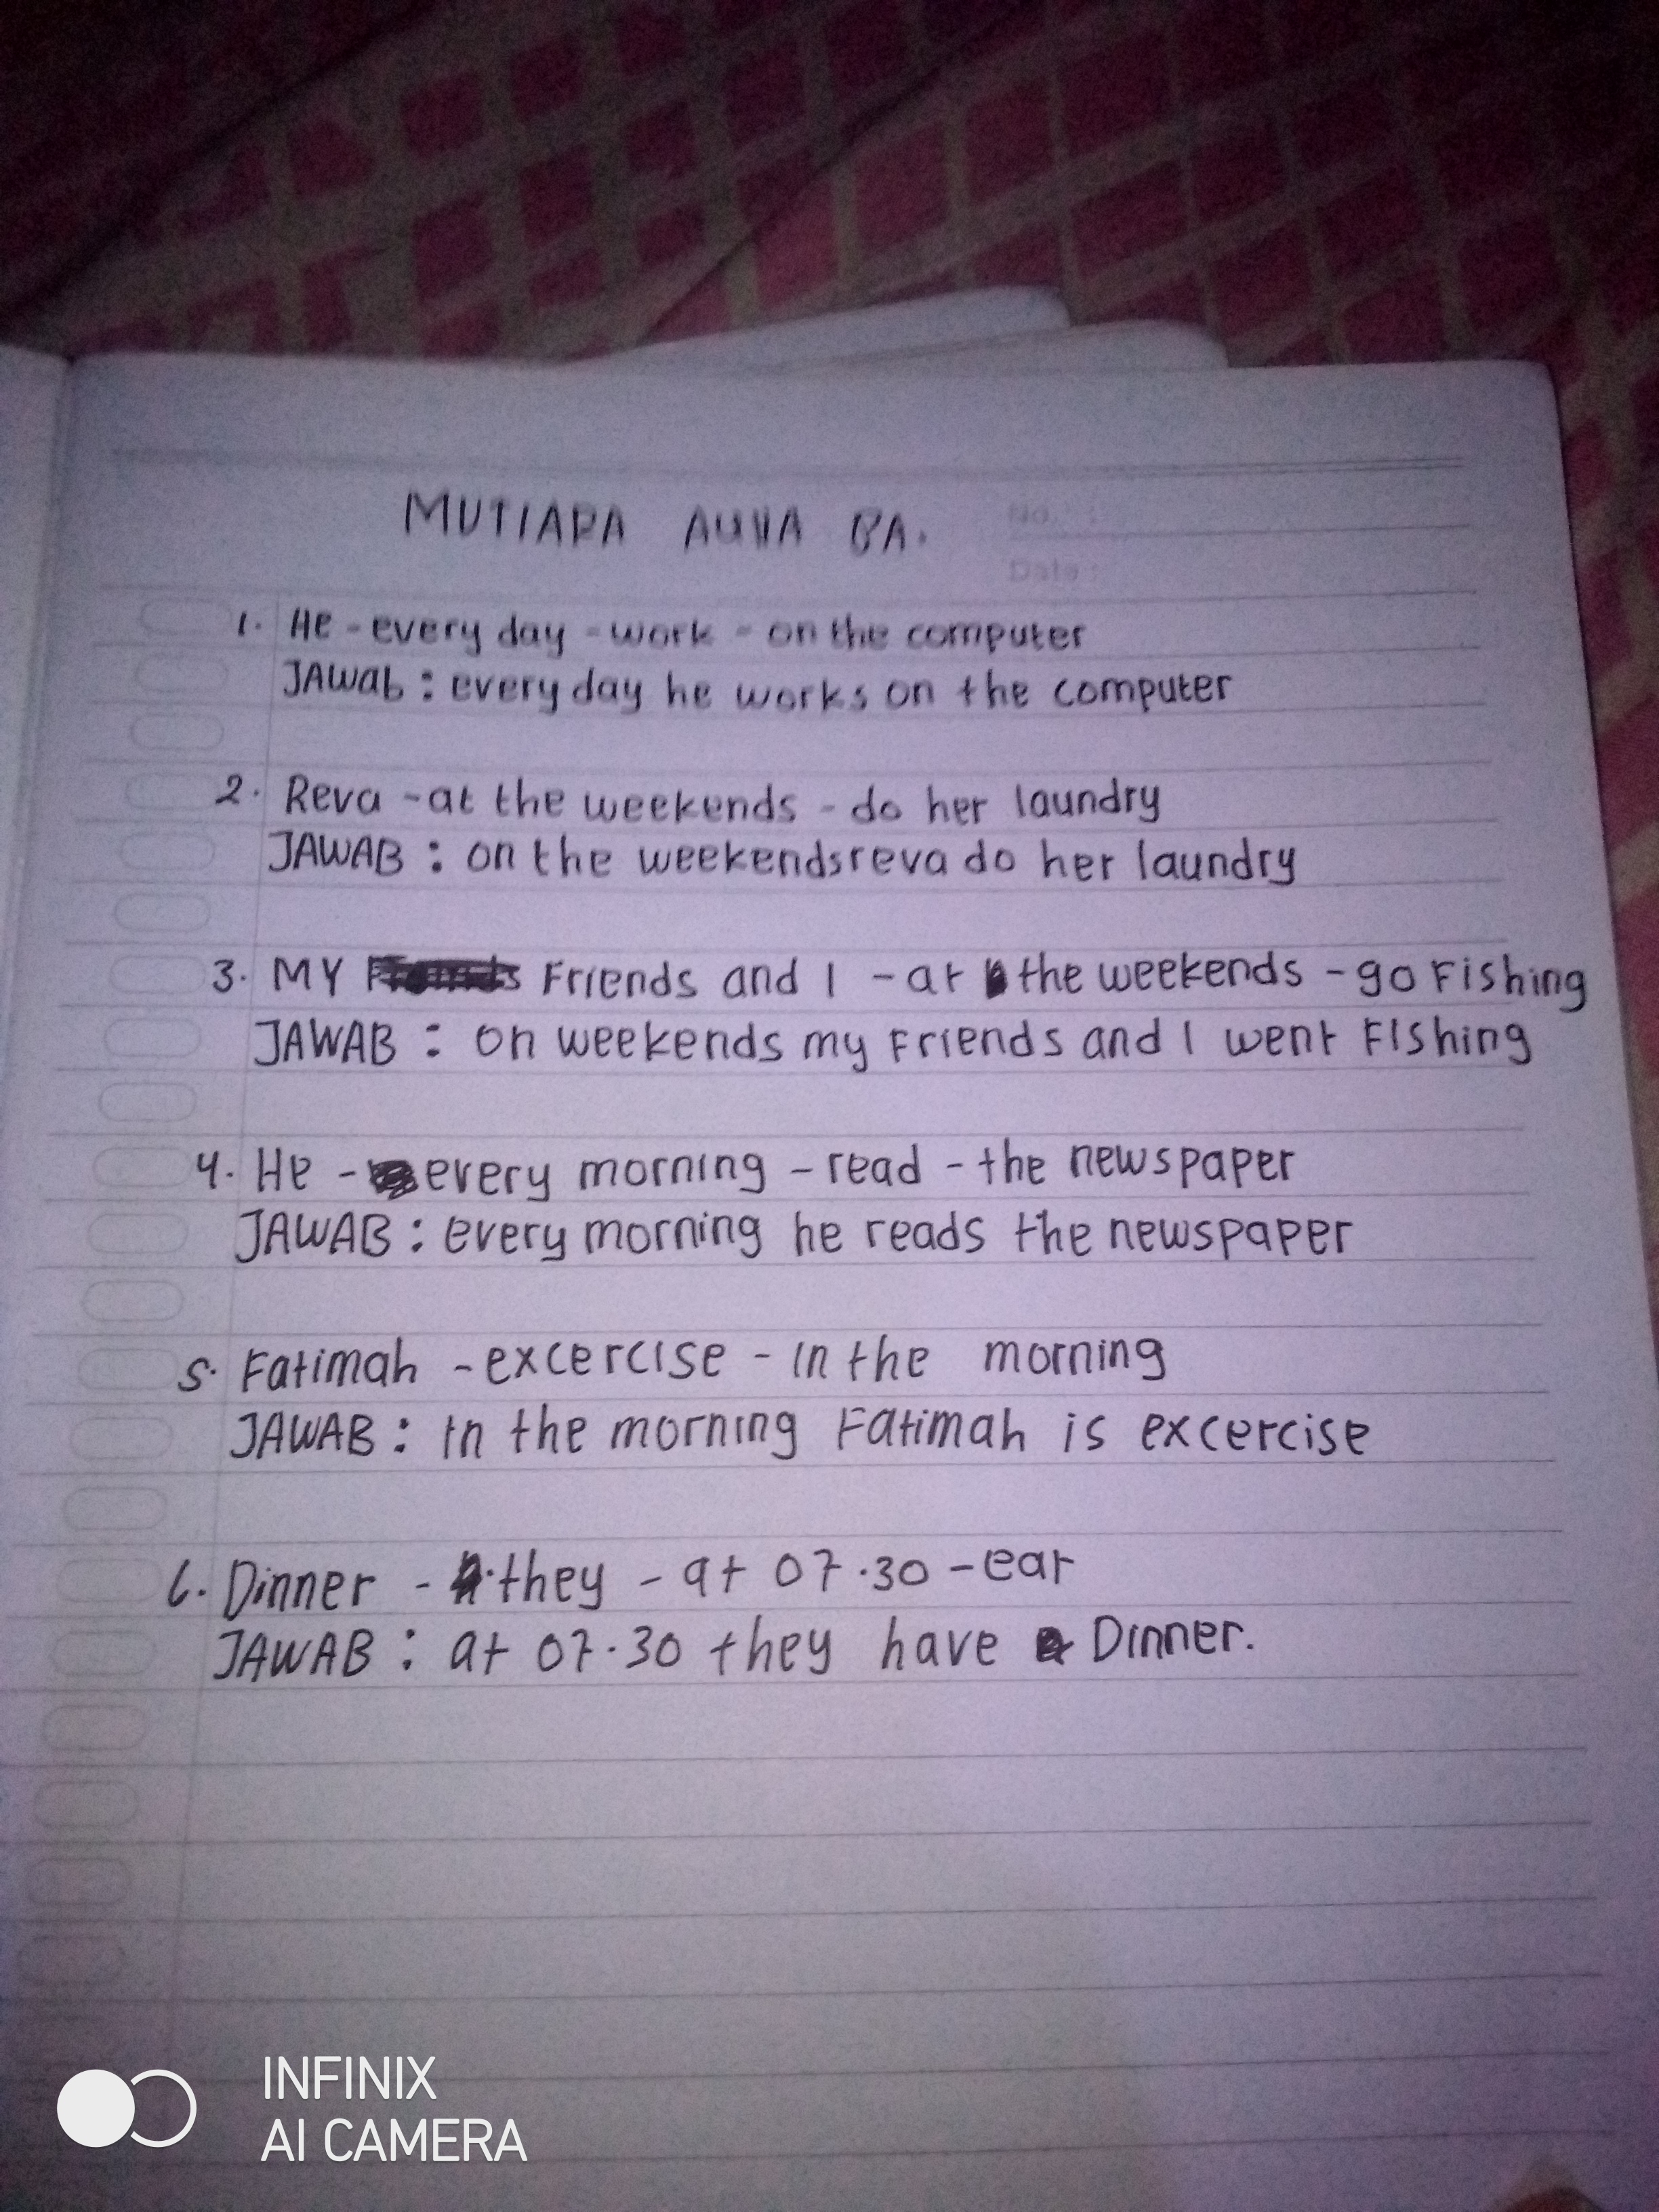 MUTIARA AULIA BA.
No. :
Date :
1. He - every day - work - on the computer
JAWab : every day he works on the computer
2. Reva - at the weekends - do her laundry
JAWAB : on the weekends reva do her laundry
3. MY Friends and I - at the weekends - go Fishing
JAWAB : on weekends my Friends and I went Fishing
4. He - every morning - read - the newspaper
JAWAB : every morning he reads the newspaper
5. Fatimah - excercise - in the morning
JAWAB : in the morning Fatimah is excercise
6. Dinner - they - at 07.30 - eat
JAWAB : at 07.30 they have Dinner.
INFINIX
AI CAMERA